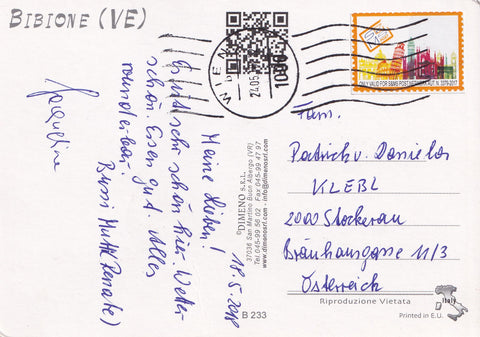 BIBIONE (VE)
WIEN
22.05.
1000
ONLY VALID FOR SMMS POST NETWORK AUT. N. 3279-2017
18.5.2018
Meine Lieben!
Es ist sehr schön hier. Wetter
schön. Essen gut. Alles
wunderbar.
Bussi Mutti (Renate)
Jaqueline
©DIMENO s.r.l.
37036 San Martino Buon Albergo (VR)
Tel. 045-99 56 02 Fax 045-99 47 97
www.dimenosrl.com - info@dimenosrl.com
B 233
Fam.
Patrick u. Daniela
KLEBL
2000 Stockerau
Bräuhausgasse 11/3
Österreich
Riproduzione Vietata
Italy
Printed in E.U.